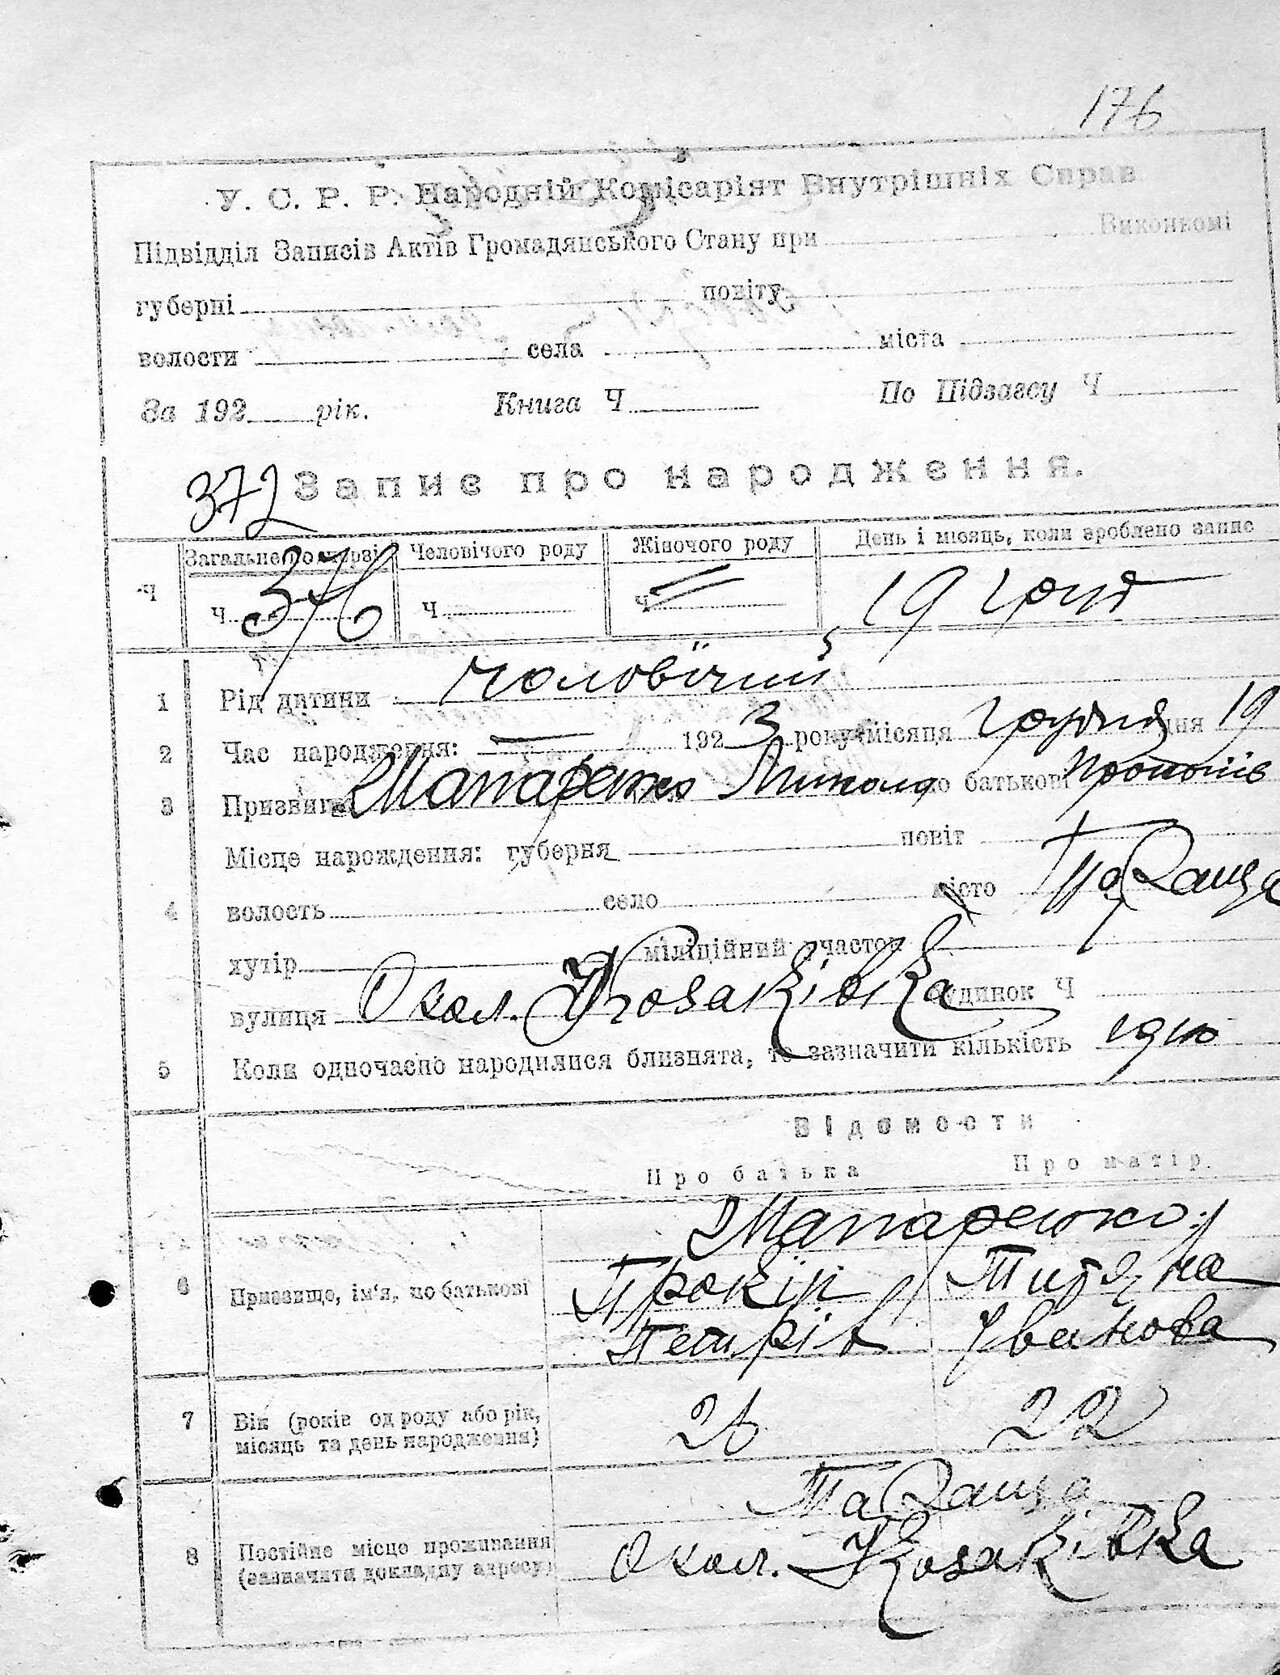 176
У. С. Р. Р. Народній Комісаріят Внутрішніх Справ
Підвідділ Записів Актів Громадянського Стану при Виконкомі
губерні повіту
волости села міста
За 192 рік. Книга Ч По Підзагсу Ч
372 Запис про народження.
Загальне по книзі Человічого роду Жіночого роду День і місяць, коли зроблено запис
Ч ч 376 Ч ч 19 грудня
1 Рід дитини чоловічий
2 Час народження: 1923 року місяця грудня дня 19
3 Призвище Макаренко Микола по батькові Прокопів
Місце народження: губерня повіт
4 волость село місто Тараща
хутір міліційний участок
вулиця Окол. Козаківка будинок Ч
5 Коли одночасно народилися близнята, то зазначити кількість одно
Відомости
Про батька Про матір.
Макаренко
6 Призвище, ім'я, по батькові Прокіп Титяна
Петрів Іванова
7 Вік (років од роду або рік, 26 22
місяць та день народження)
Тараща
8 Постійне місце проживання Окол. Козаківка
(зазначити докладну адресу)